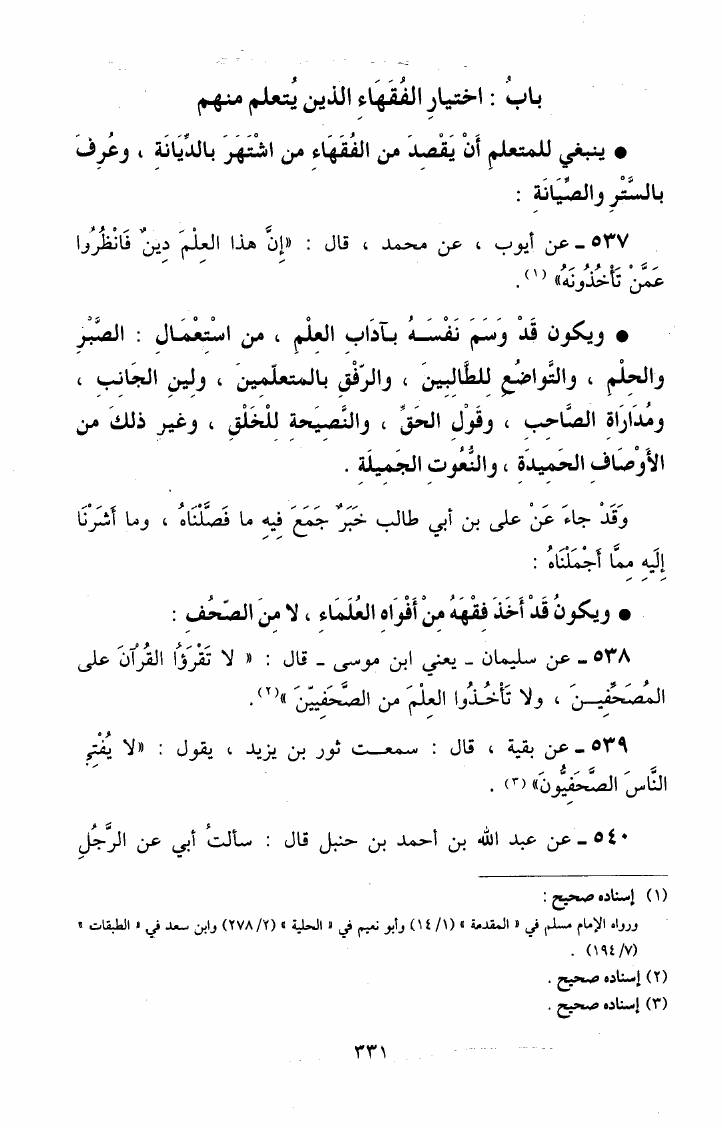 بابُ : اختيارِ الفُقَهَاءِ الذين يُتعلم منهم
● ينبغي للمتعلمِ أَنْ يَقْصِدَ من الفُقَهَاءِ من اشْتَهَرَ بالدِّيَانَةِ ، وعُرِفَ
بالسَّتْرِ والصِّيَانَةِ :
٥٣٧ ـ عن أيوب ، عن محمد ، قال : «إِنَّ هذا العِلْمَ دِينٌ فَانْظُرُوا
عَمَّنْ تَأْخُذُونَهُ» (١).
● ويكون قَدْ وَسَمَ نَفْسَـهُ بـآدَابِ العِلْمِ ، من اسْتِعْمَـالِ : الصَّبْرِ
والحِلْمِ ، والتَّواضُعِ للطَّالِبِينَ ، والرِّفْقِ بالمتعلِّمِينَ ، ولِينِ الجَانِبِ ،
ومُدَارَاةِ الصَّاحِبِ ، وقَوْلِ الحَقِّ ، والنَّصِيْحَةِ للْخَلْقِ ، وغيرِ ذلكَ من
الأَوْصَافِ الحَمِيدَةِ ، والنُّعُوتِ الجَمِيلَةِ .
وَقَدْ جاءَ عَنْ على بن أبي طالب خَبَرٌ جَمَعَ فِيهِ ما فَصَّلْنَاهُ ، وما أَشَرْنَا
إِلَيهِ مِمَّا أَجْمَلْنَاهُ :
● ويكونُ قَدْ أَخَذَ فِقْهَهُ مِنْ أَفْوَاهِ العُلَمَاءِ ، لا مِنَ الصّحُفِ :
٥٣٨ ـ عن سليمان ـ يعني ابن موسى ـ قال : « لا تَقْرَؤُا القُرْآنَ على
المُصَحِّفِيـنَ ، ولا تَأْخُـذُوا العِلْمَ من الصَّحَفِيِّينَ »(٢).
٥٣٩ ـ عن بقية ، قال : سمعـت ثور بن يزيد ، يقول : «لا يُفْتِي
النَّاسَ الصَّحَفِيُّونَ» (٣) .
٥٤٠ ـ عن عبد الله بن أحمد بن حنبل قال : سألتُ أبي عن الرَّجُلِ
(١) إسناده صحيح :
ورواه الإمام مسلم في « المقدمة » (١٤/١) وأبو نعيم في « الحلية » (٢٧٨/٢) وابن سعد في « الطبقات »
(١٩٤/٧) .
(٢) إسناده صحيح .
(٣) إسناده صحيح .
٣٣١